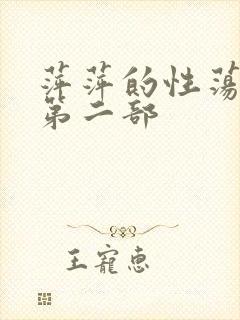 萍萍的性荡
第二部
王宠惠